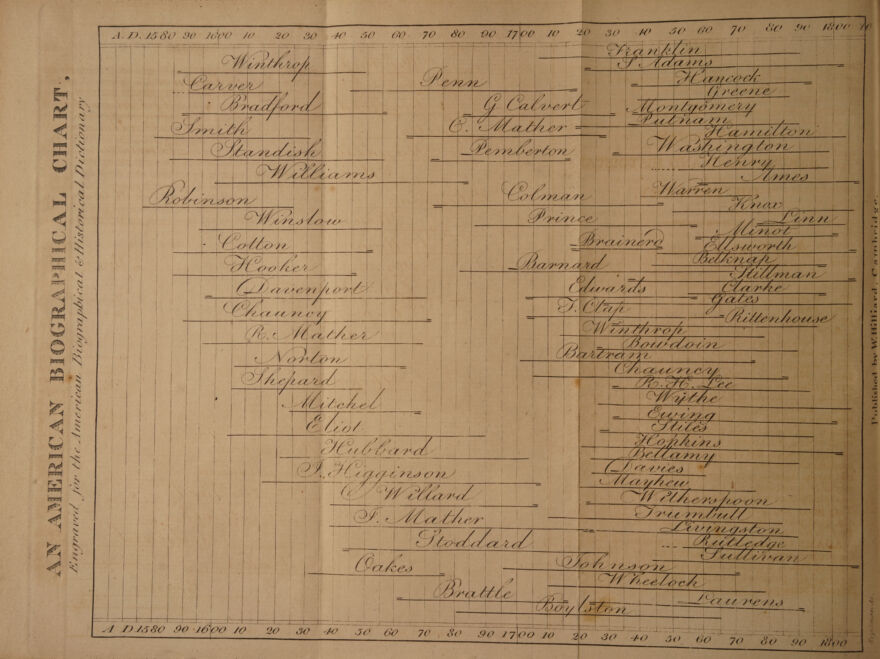 AN AMERICAN BIOGRAPHICAL CHART,
Engraved for the American Biographical & Historical Dictionary
A.D. 1580 90 1600 10 20 30 40 50 60 70 80 90 1700 10 20 30 40 50 60 70 80 90 1800 10
Franklin
Winthrop S Adams
Carver Penn Hancock
Greene
Bradford G Calvert Montgomery
Putnam
Smith C. Mather Hamilton
Standish Pemberton Washington
Henry
Williams Ames
Robinson Colman Warren
Knox
Winslow Prince Linn
Minot
Cotton Brainerd Ellsworth
Hooker Barnard Belknap
Stillman
Davenport Edwards Clarke
Gates
Chauncy T. Clap Rittenhouse
R. Mather Winthrop
Bowdoin
Norton Bartram
Shepard Chauncy
R. H. Lee
Mitchel Wythe
Eliot Ewing
Stiles
Hubbard Hopkins
Bellamy
J. Higginson Davies
Mayhew
Willard Witherspoon
I. Mather Trumbull
Livingston
Stoddard Rutledge
Sullivan
Oakes Johnson
Brattle Wheelock
Boylston Laurens
A D 1580 90 1600 10 20 30 40 50 60 70 80 90 1700 10 20 30 40 50 60 70 80 90 1800
Published by W. Hilliard, Cambridge.